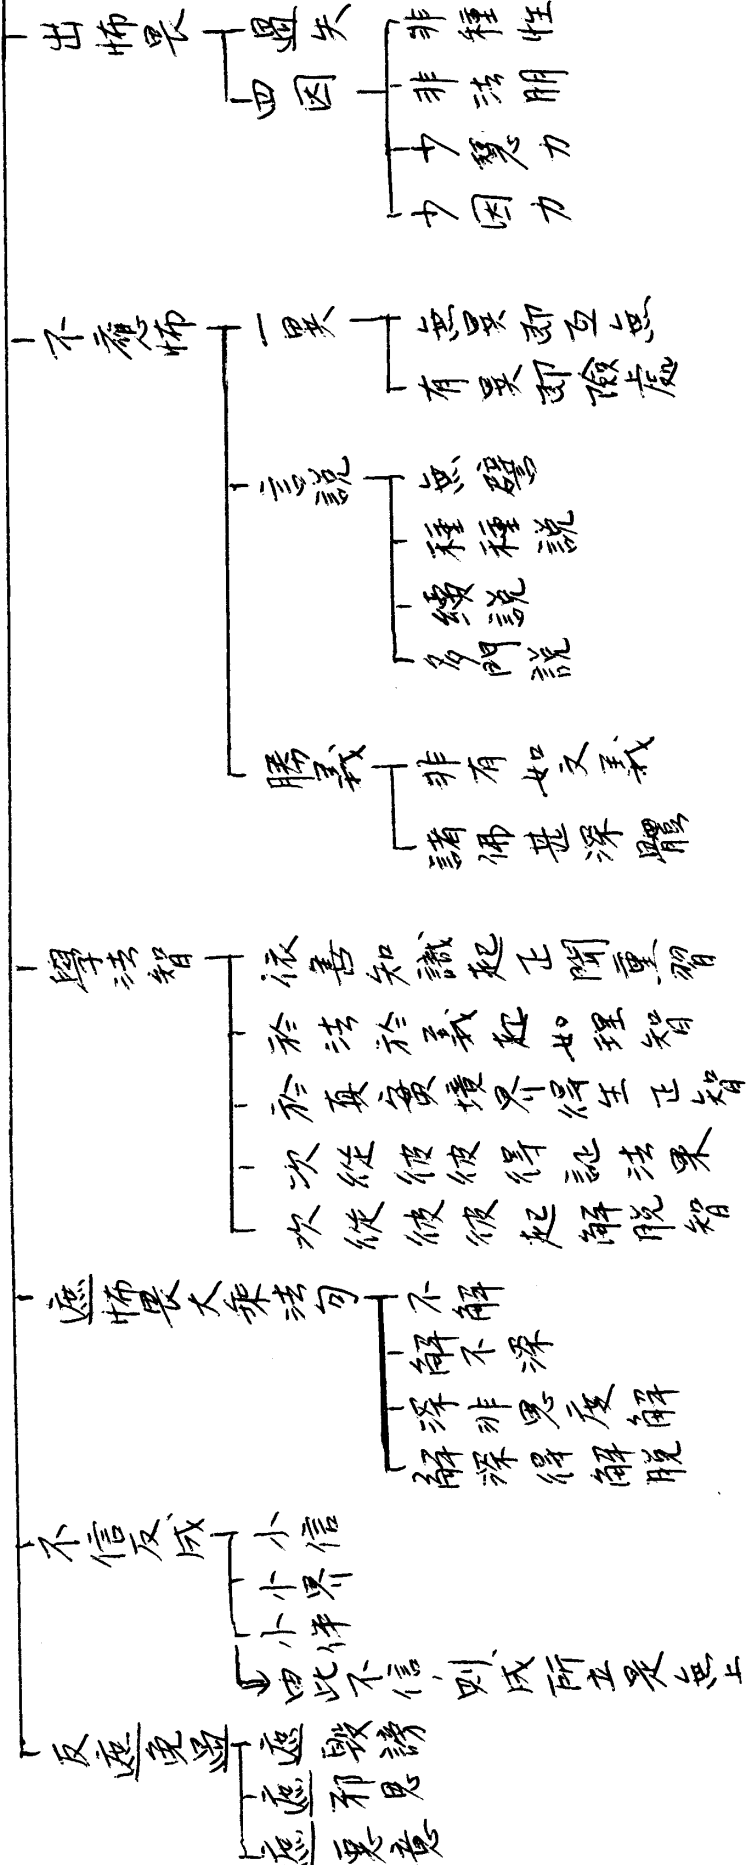 出怖畏
過失
四因
非種性
非法朋
少慧力
少因力
不應怖
一異
無異即互無
有異即險處
言說
無譬
種種說
續說
多門說
勝義
非有如文義
諸佛甚深體
學法智
依善知識起正聞熏習
於法於義起如理智
於真實境界得生正智
次從彼彼得証法果
次從彼彼起解脫智
遮怖畏大乘法句
不解
解不深
深非思度解
解深得解脫
不信反成
小信
小界
小伴
由此不信,則成所立是無上
反遮免留
遮毀謗
遮邪思
遮惡意